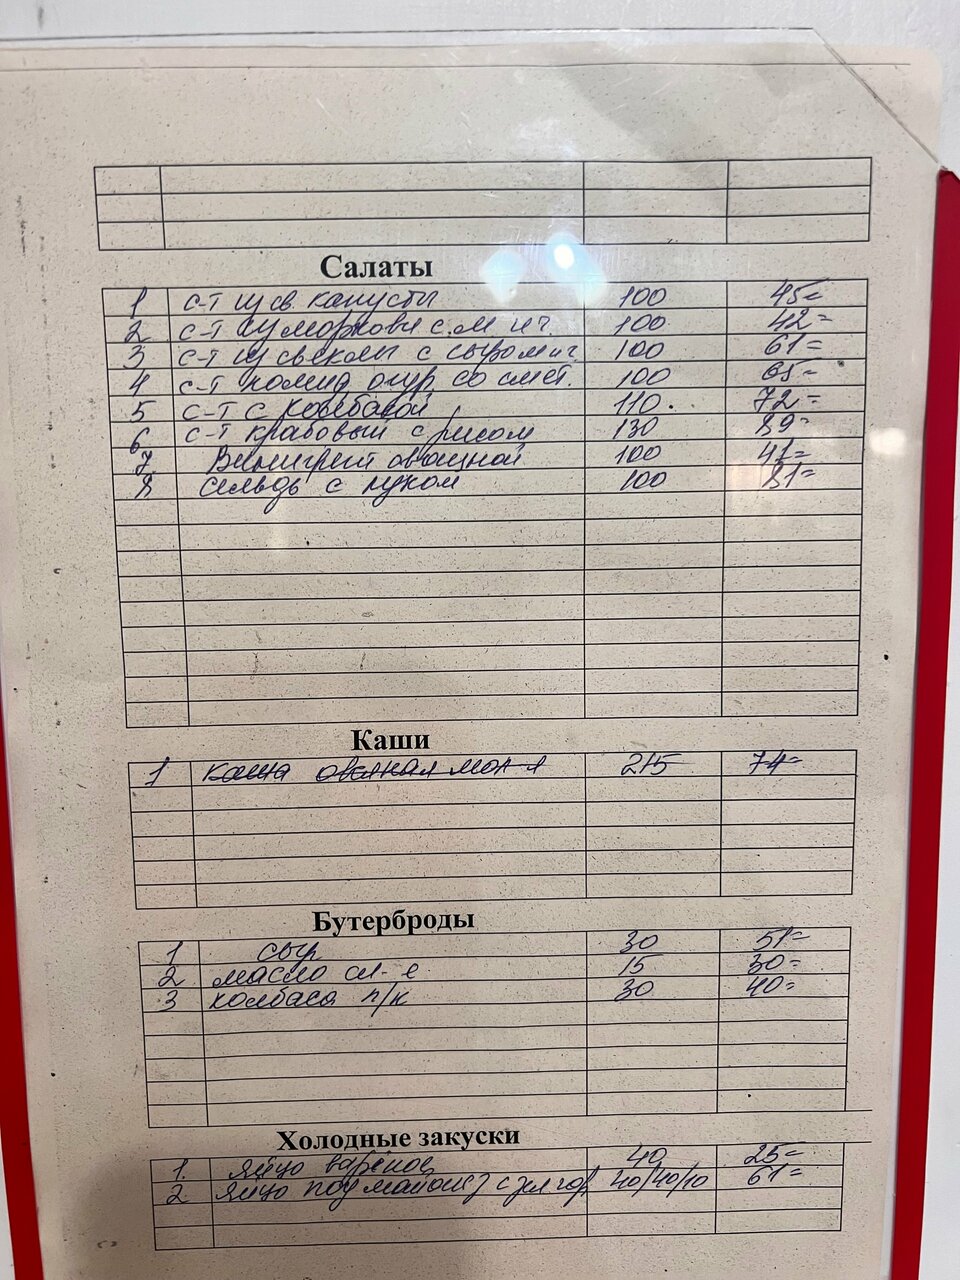 Салаты
1 с-т из св капусты 100 45=
2 с-т из моркови с.м и ч. 100 42=
3 с-т из свеклы с сыром и ч 100 61=
4 с-т помид огур со смет. 100 65=
5 с-т с колбасой 110. 72=
6 с-т крабовый с рисом 130 89=
7. Винигрет овощной 100 41=
8 сельдь с луком 100 81=
Каши
1 каша овсяная мол-я 215 74=
Бутерброды
1 сыр 30 51=
2 масло сл-е 15 30=
3 колбаса п/к 30 40=
Холодные закуски
1. яйцо варёное 40 25=
2 яйцо под майонез с зел гор 40/40/10 61=